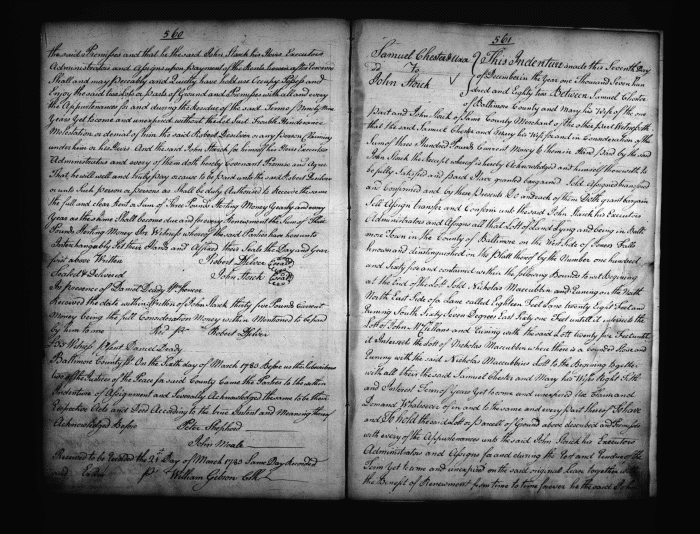 560
the said Premises and that he the said John Stuck his Heirs Executors
Administrators and Assigns upon payment of the Rents
Shall and may Peaceably and Quietly have hold use Occupy Possess and
Enjoy the said parts of Ground and Premises with all and every
the Appurtenances for and during the Residue of the said Term of Ninety Nine
Years Yet to come and unexpired without the Let Suit Trouble Hinderance
Molestation or denial of him the said Robert or any person Claiming
under him or his Heirs And the said John for himself his Heirs Executors
Administrators and every of them doth hereby Covenant Promise and Agree
That he will well and truly pay or cause to be paid unto the said Robert
or unto Such person or persons as Shall be duly Authorized to Receive the same
the full and clear Rent or Sum of Pounds Sterling Money Yearly and every
Year as the same Shall become due and for every Renewment the Sum of
Pounds Sterling Money In Witness whereof the said Parties have hereunto
Interchangeably Set their Hands and Affixed their Seals the Day and Year
first above Written Robert
Sealed & Delivered John
In the presence of Daniel Deady
Received the date within Written of John thirty five Pounds Current
Money being the full Consideration Money within Mentioned to be paid
by him to me Robert
£35 Witness Daniel Deady
Baltimore County On the Sixth day of March 1783 Before us the Subscribers
two of the Justices of the Peace for said County Came the Parties to the within
Indenture of Assignment and Severally Acknowledged the same to be their
Respective Acts and Deed According to the true Intent and Meaning thereof
Acknowledged Before Peter Shepherd
John Moale
Received to be Recorded the 21st Day of March 1783 Same Day Recorded
and William Gibson Clk
561
Samuel Chester & Uxr
To
John
This Indenture made this Seventh Day
of December in the Year one Thousand Seven hun
dred and Eighty two Between Samuel Chester
of Baltimore County and Mary his Wife of the one
part and John of Same County Merchant of the other part Witnesseth
that the said Samuel Chester and Mary his Wife for and in Consideration of the
Sum of three Hundred Pounds Current Money to them in Hand paid by the said
John the Receipt whereof is hereby Acknowledged and himself therewith to
be fully Satisfied and paid Have granted bargained Sold Assigned transferred
and Confirmed and by these Presents Do and each of them Doth grant bargain
Sell Assign transfer and Confirm unto the said John his Executors
Administrators and Assigns all that Lott of Land Lying and being in Balti
more Town in the County of Baltimore on the West Side of Jones Falls
known and distinguished on the Platt thereof by the Number one hundred
and Sixty five and contained within the following Bounds to wit Beginning
at the End of the Lott Sold Nicholas Maccubbin and Running on the North
North East Side of a Lane called Eighteen Feet Lane twenty Eight Feet and
Running South Sixty Seven Degrees East Sixty one Feet untill it intersects the
Lott of John and Runing with the said Lott twenty five Feet untill
it Intersects the Lott of Nicholas Maccubbin where there is a bounded Stone and
Runing with the said Nicholas Maccubbins Lott to the Begining
with all their the said Samuel Chester and Mary his Wifes Right Title
and Interest Term of Years Yet to come and unexpired Use Claim and
Demand Whatsoever of in and to the same and every part thereof To have
and To Hold the said Lott or Parcell of Ground above described and Premises
with every of the Appurtenances unto the said John his Executors
Administrators and Assigns for and during the Rest and Residue of the
Term Yet to come and unexpired on the said original Lease together with
the Benefit of Renewment from time to time forever he the said John